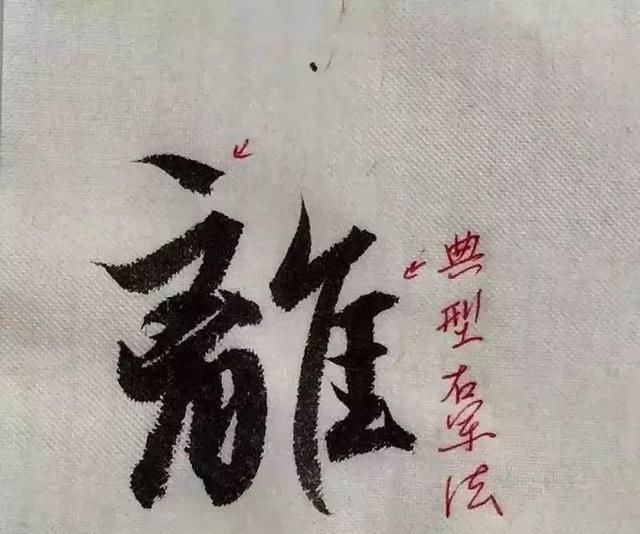 離
典型右军法